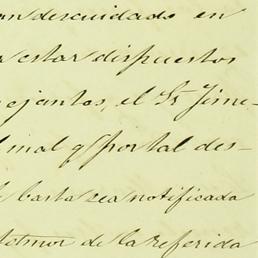 descuidado en
estar dispuestos
ejantes, el Sr Jime-
mal q portal des-
basta sea notificada
tenor de la referida